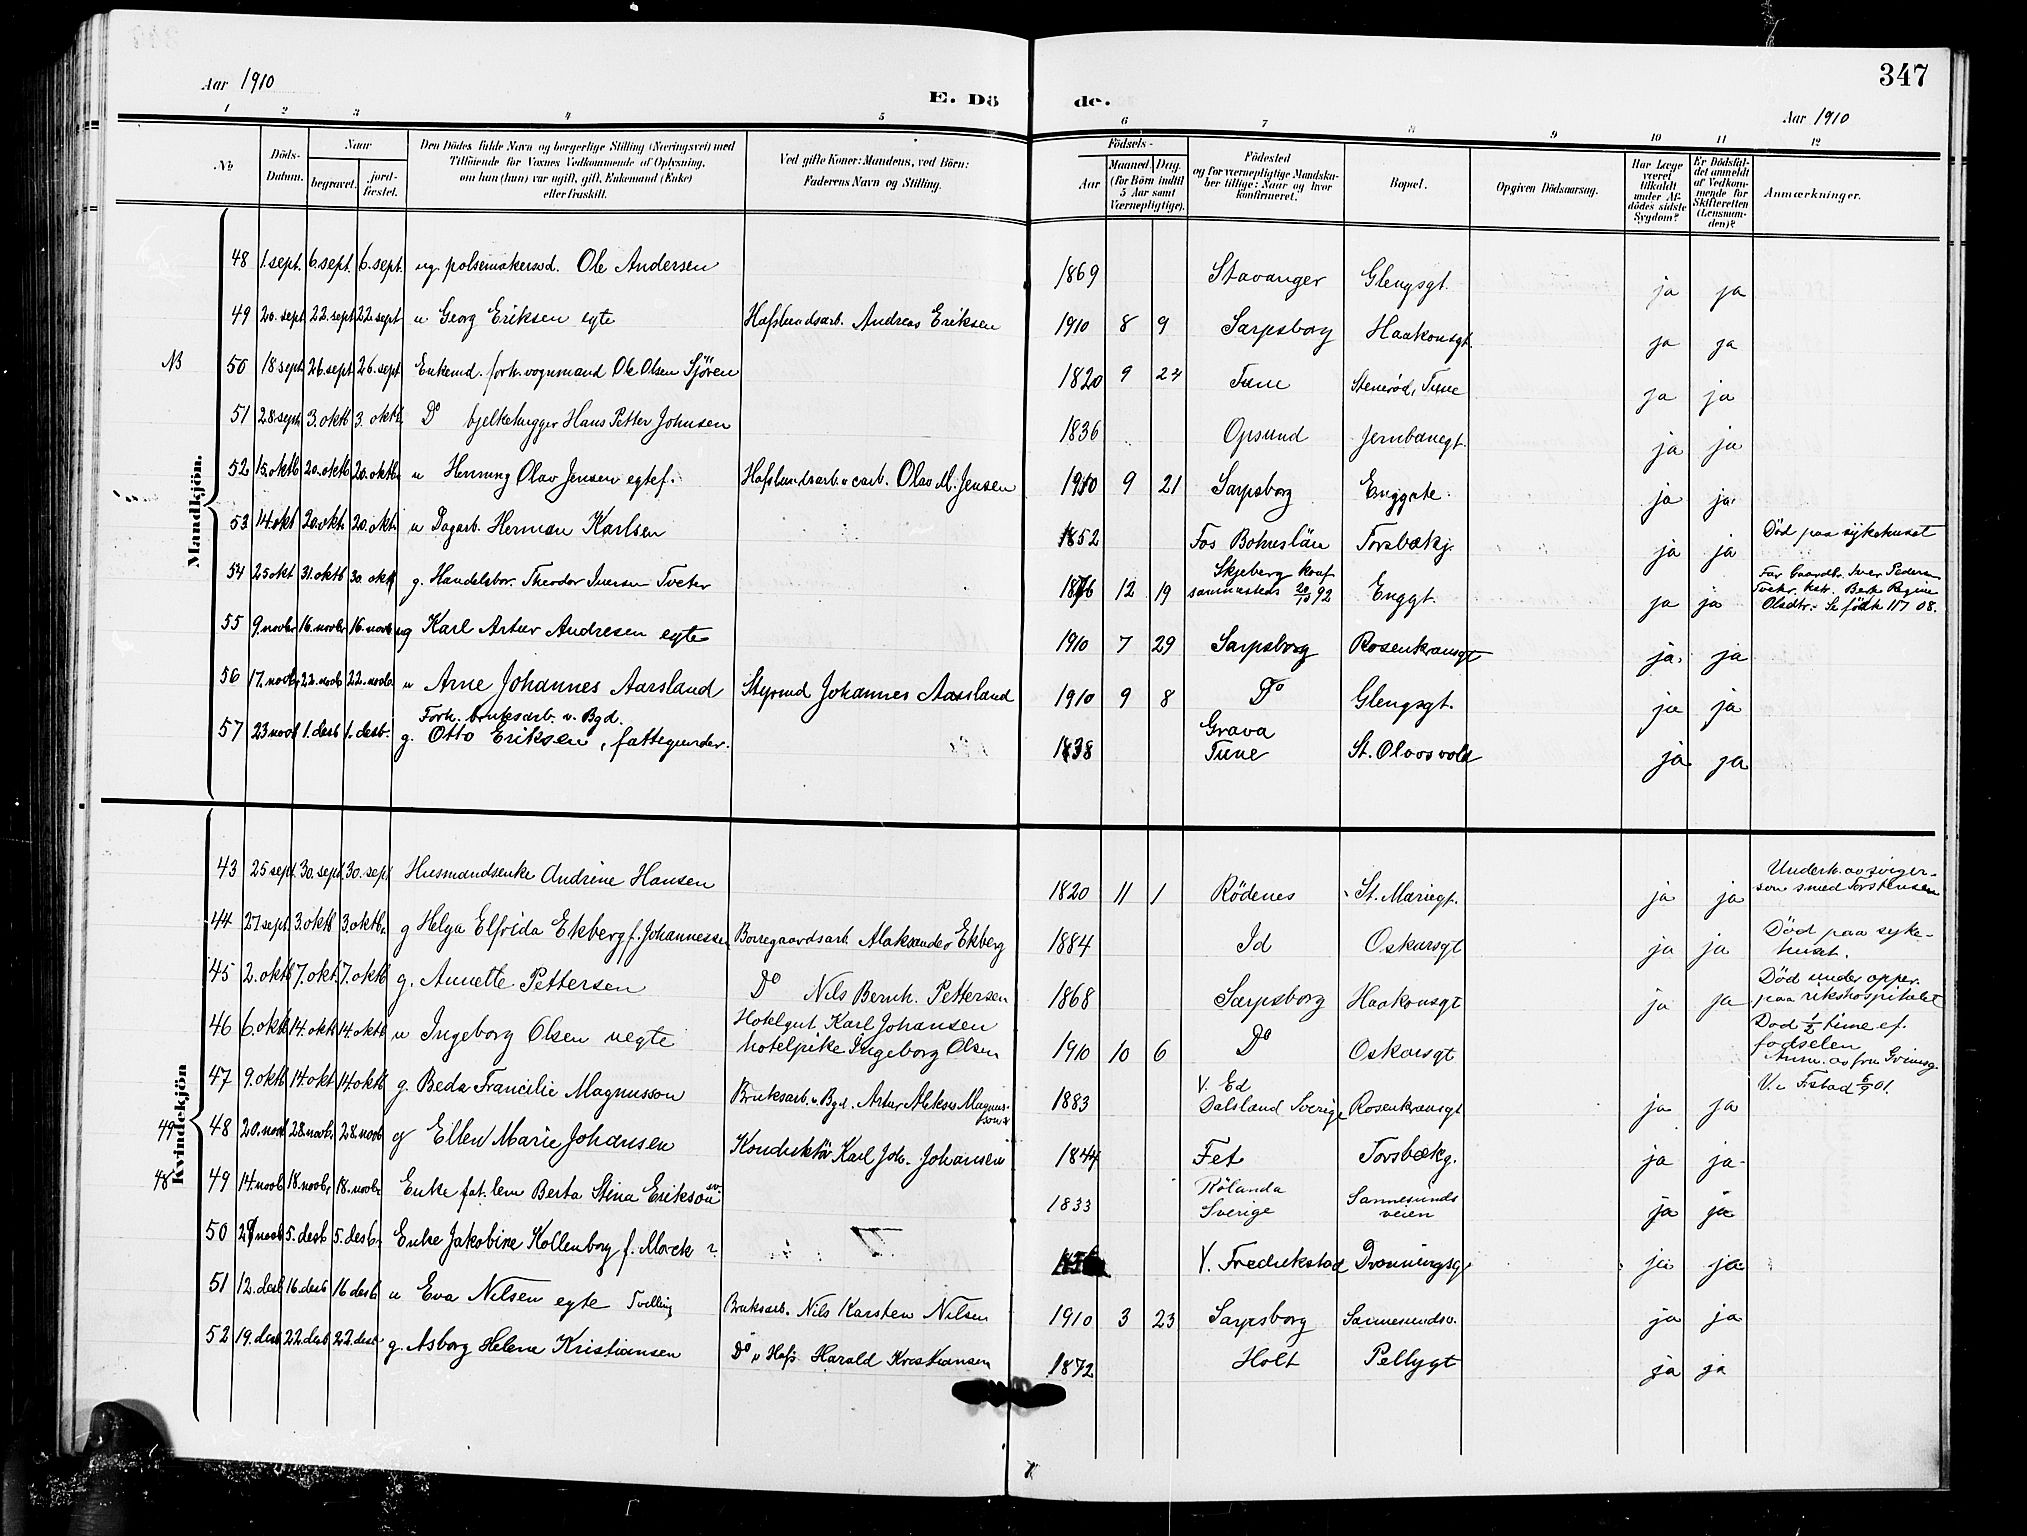 347
Aar 1910
E. Döde.
Aar 1910
1 2 3 4 5 6 7 8 9 10 11 12
No
Döds-Datum.
Naar
begravet.
jord-fæstet.
Den Dödes fulde Navn og borgerlige Stilling (Næringsvei) med
Tilföiende for Voxnes Vedkommende af Oplysning,
om han (hun) var ugift, gift, Enkemand (Enke)
eller fraskilt.
Ved gifte Koner: Mandens, ved Börn:
Faderens Navn og Stilling.
Födsels-
Aar
Maaned. Dag.
(for Börn indtil
5 Aar samt
Værnepligtige).
Födested
og for værnepligtige Mandska-
ber tillige: Naar og hvor
konfirmeret.
Bopæl.
Opgiven Dödsaarsag.
Har Læge
været
tilkaldt
under Af-
dödes sidste
Sygdom?
Er Dödsfal-
det anmeldt
af Vedkom-
mende for
Skifteretten
(Lensman-
den)?
Anmærkninger.
Mandkjön.
48 1. sept. 6. sept. 6. sept. ug. polsemakersvd. Ole Andersen 1869 Stavanger Glengsgt. ja ja
49 20. sept 22. sept 22. sept u Georg Eriksen egte Hafslundsarb. Andreas Eriksen 1910 8 9 Sarpsborg Haakonsgt. ja ja
NB 50 18 sept 26. sept 26. sept Enkemd. forh. vognmand Ole Olsen Sjören 1820 9 24 Tune Stenröd, Tune ja ja
51 28. sept 3. oktb 3. oktb. Do bjelkehugger Hans Petter Johnsen 1836 Opsund Jernbanegt. ja ja
52 15. oktb 20. oktb 20. oktb. u Henning Olav Jensen egtef. Hafslundsarb. v carb. Olav M. Jensen 1910 9 21 Sarpsborg Enggate. ja ja
53 14. okt 20. okt. 20. okt. u Dagarb. Herman Karlsen 1852 Fos Bohuslän Torsbækg. ja ja Död paa sykehuset
54 25 okt 31. oktb 30. okt g. Handelsbor. Theodor Iversen Tveter 1876 12 19 Skjeberg konf sammesteds 92 Enggt. ja ja Far Gaardbr. Iver Pedersen
Tveter. kstr. Berte Regine
Olsdtr. Se födte 117 08.
55 9. novbr. 16. novbr. 16. novb ug Karl Artur Andresen egte 1910 7 29 Sarpsborg Rosenkransgt ja. ja
56 17. novb. 22. novb 22. novb. u Arne Johannes Aarsland Styrmd Johannes Aarsland 1910 9 8 Do Glengsgt. ja ja
57 23 novb 1. desb 1. desb. Forh. bruksarb. v. Bgd.
g. Otto Eriksen, fattigunder. 1838 Grava
Tune St. Olavsvold ja ja
Kvindekjön
43 25 sept. 30. sept. 30. sept Husmandsenke Andrine Hansen 1820 11 1 Rödenes St. Mariegt. ja ja Underh. av sviger-
sön smed Torstensen
44 27 sept. 3. oktb 3. oktb. g Helga Elfrida Ekberg f. Johannessen Borregaardsarb. Aleksander Ekberg 1884 Id Oskarsgt ja ja Död paa syke-
huset.
45 2. oktb 7. okt. 7. oktb g. Annette Pettersen Do Nils Bernh. Pettersen 1868 Sarpsborg Haakonsgt ja ja Död under opper.
paa rikshospitalet
46 6. oktb 14. oktb 14. oktb u Ingeborg Olsen uegte Hotelgut Karl Johansen
hotelpike Ingeborg Olsen 1910 10 6 Do Oskarsgt Död 1/2 time ef.
födselen
47 9. oktb 14. okt 14 oktb g. Beda Francilie Magnusson Bruksarb. v. Bgd. Artur Aleksis Magnus-
son 1883 V. Ed
Dalsland Sverige Rosenkransgt ja ja V. Fstad 01.
49 48 20. novb 28. novb. 28. novb g Ellen Marie Johansen Konduktör Karl Joh. Johansen 1844 Fet Torsbækg. ja ja
48 49 14. novb. 18. novb. 18. novb. Enke fat. lem Berta Stina Erikson 1833 Rölanda
Sverige Sannesunds
veien ja ja
50 29 novb 5. desb 5. desb. Enke Jakobine Kollenborg f. Morck ? V. Fredrikstad Dronningsg. ja ja
51 12. desb 16. desb 16 desb. u Eva Nilsen egte Tvilling Bruksarb. Nils Karsten Nilsen 1910 3 23 Sarpsborg Sannesundsv. ja ja
52 19. desb 22. desb 22. desb g. Asborg Helene Kristiansen Do v Hafs. Harald Kristiansen 1872 Holt Pellygt ja ja